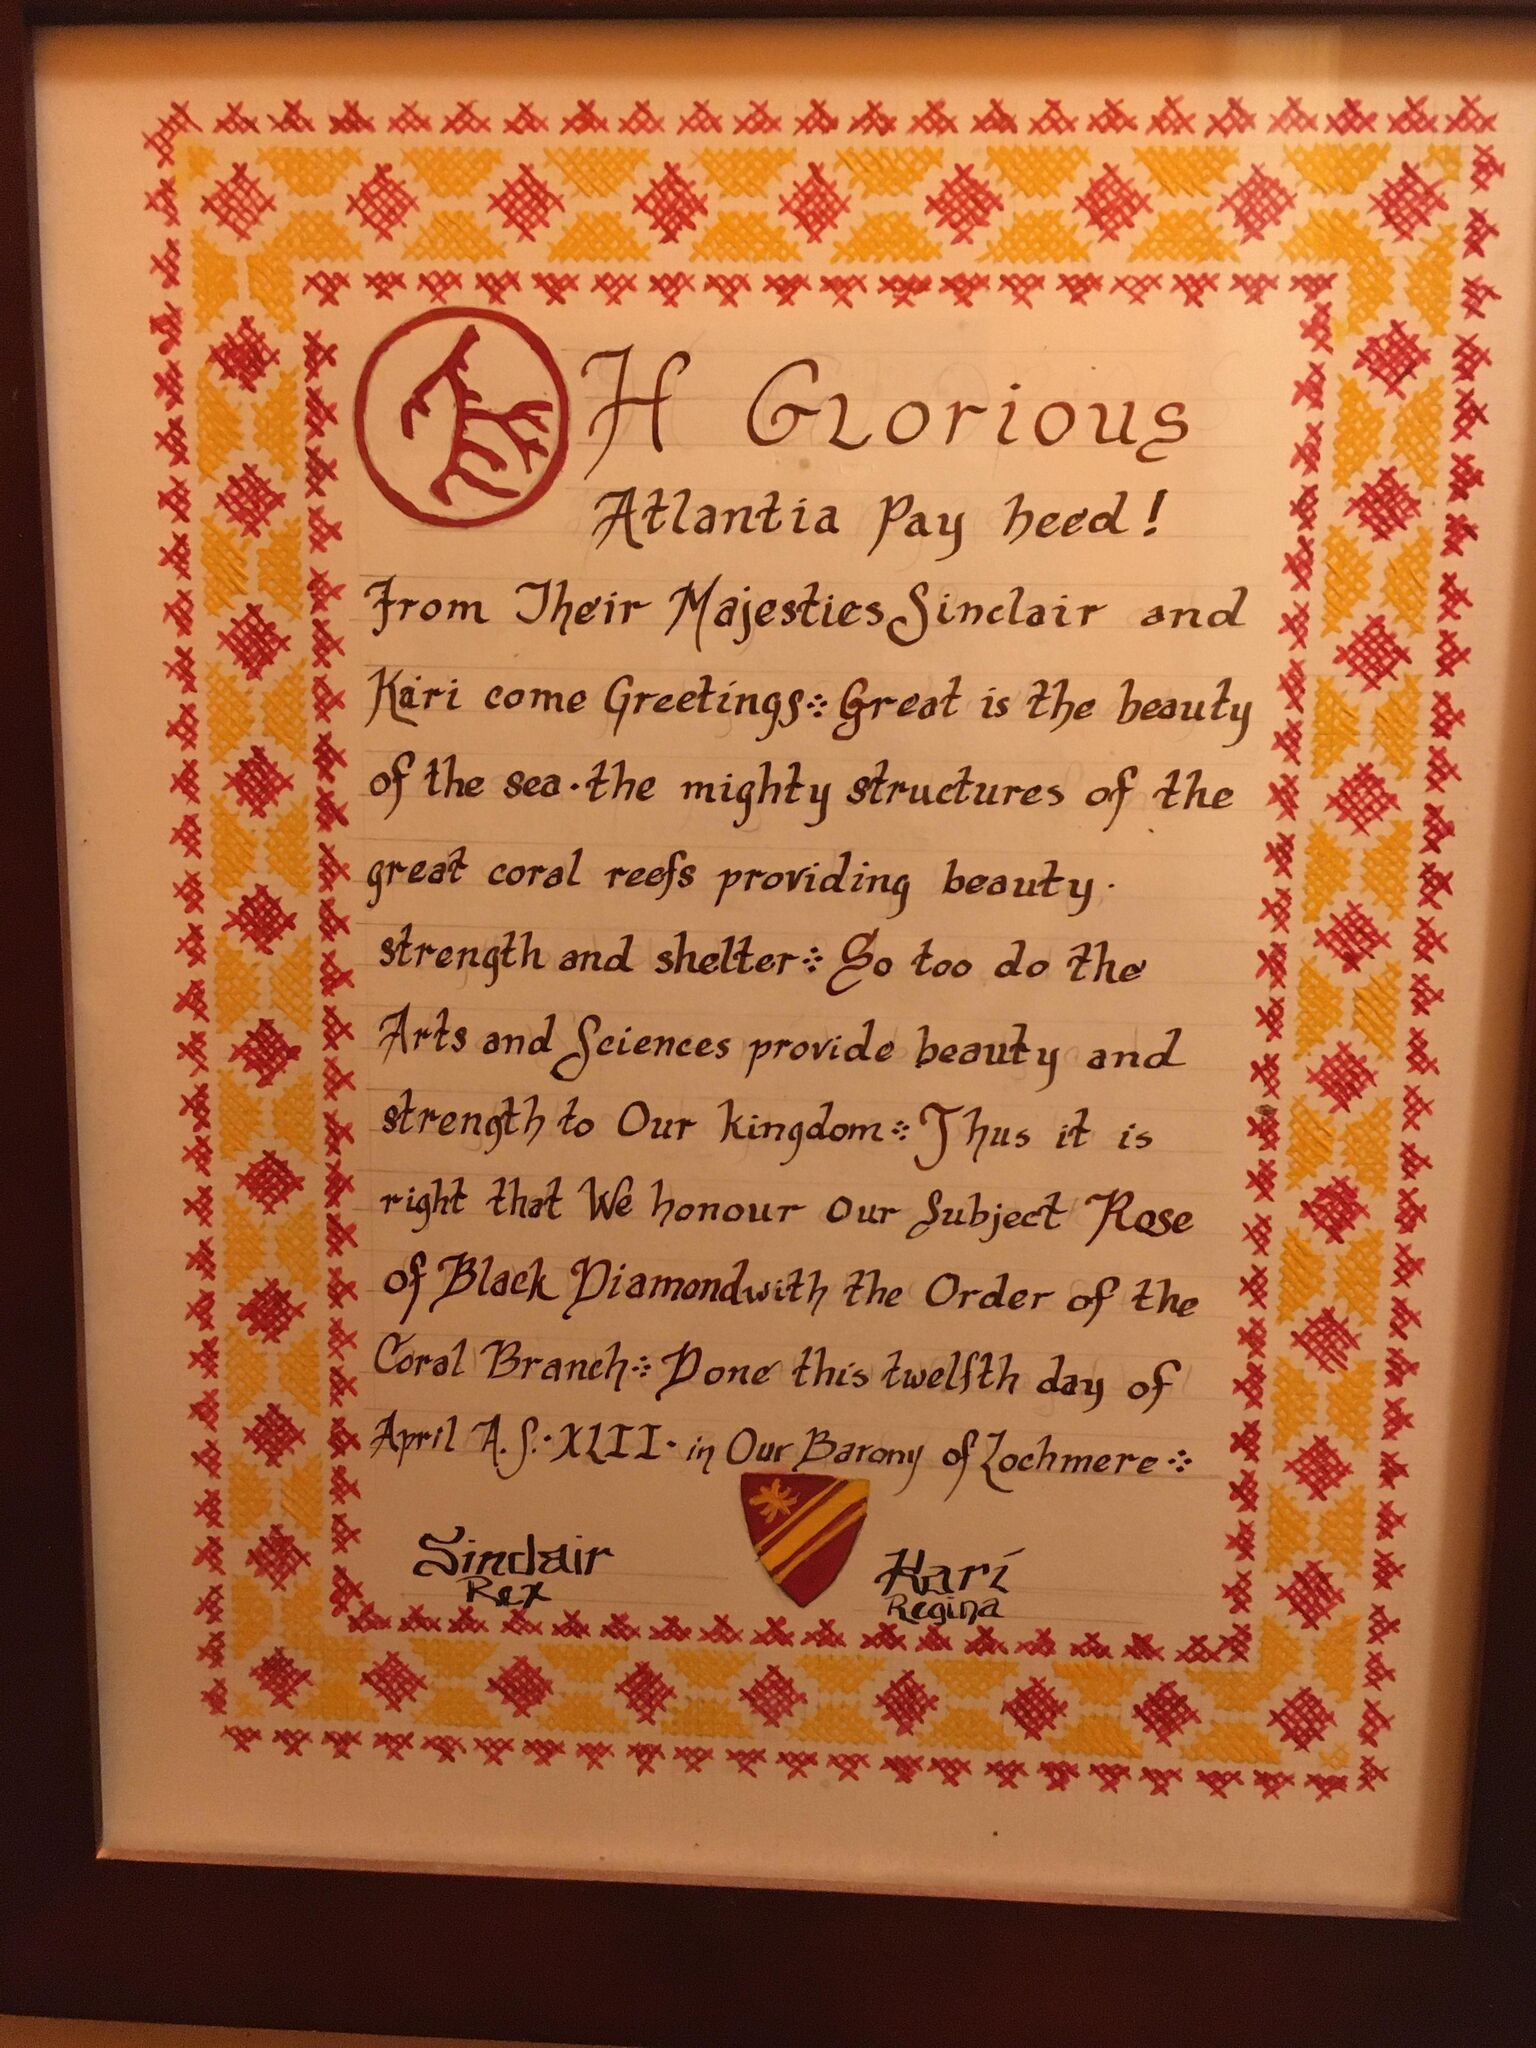 OH GLorious
Atlantia Pay heed!
From Their Majesties Sinclair and
Kári come Greetings⁘ Great is the beauty
of the sea · the mighty structures of the
great coral reefs providing beauty ·
strength and shelter⁘ So too do the
Arts and Sciences provide beauty and
strength to Our kingdom⁘ Thus it is
right that We honour Our Subject Rose
of Black Diamond with the Order of the
Coral Branch⁘ Done this twelfth day of
April A.S. · XLII · in Our Barony of Lochmere⁘
Sinclair
Rex
Kari
Regina